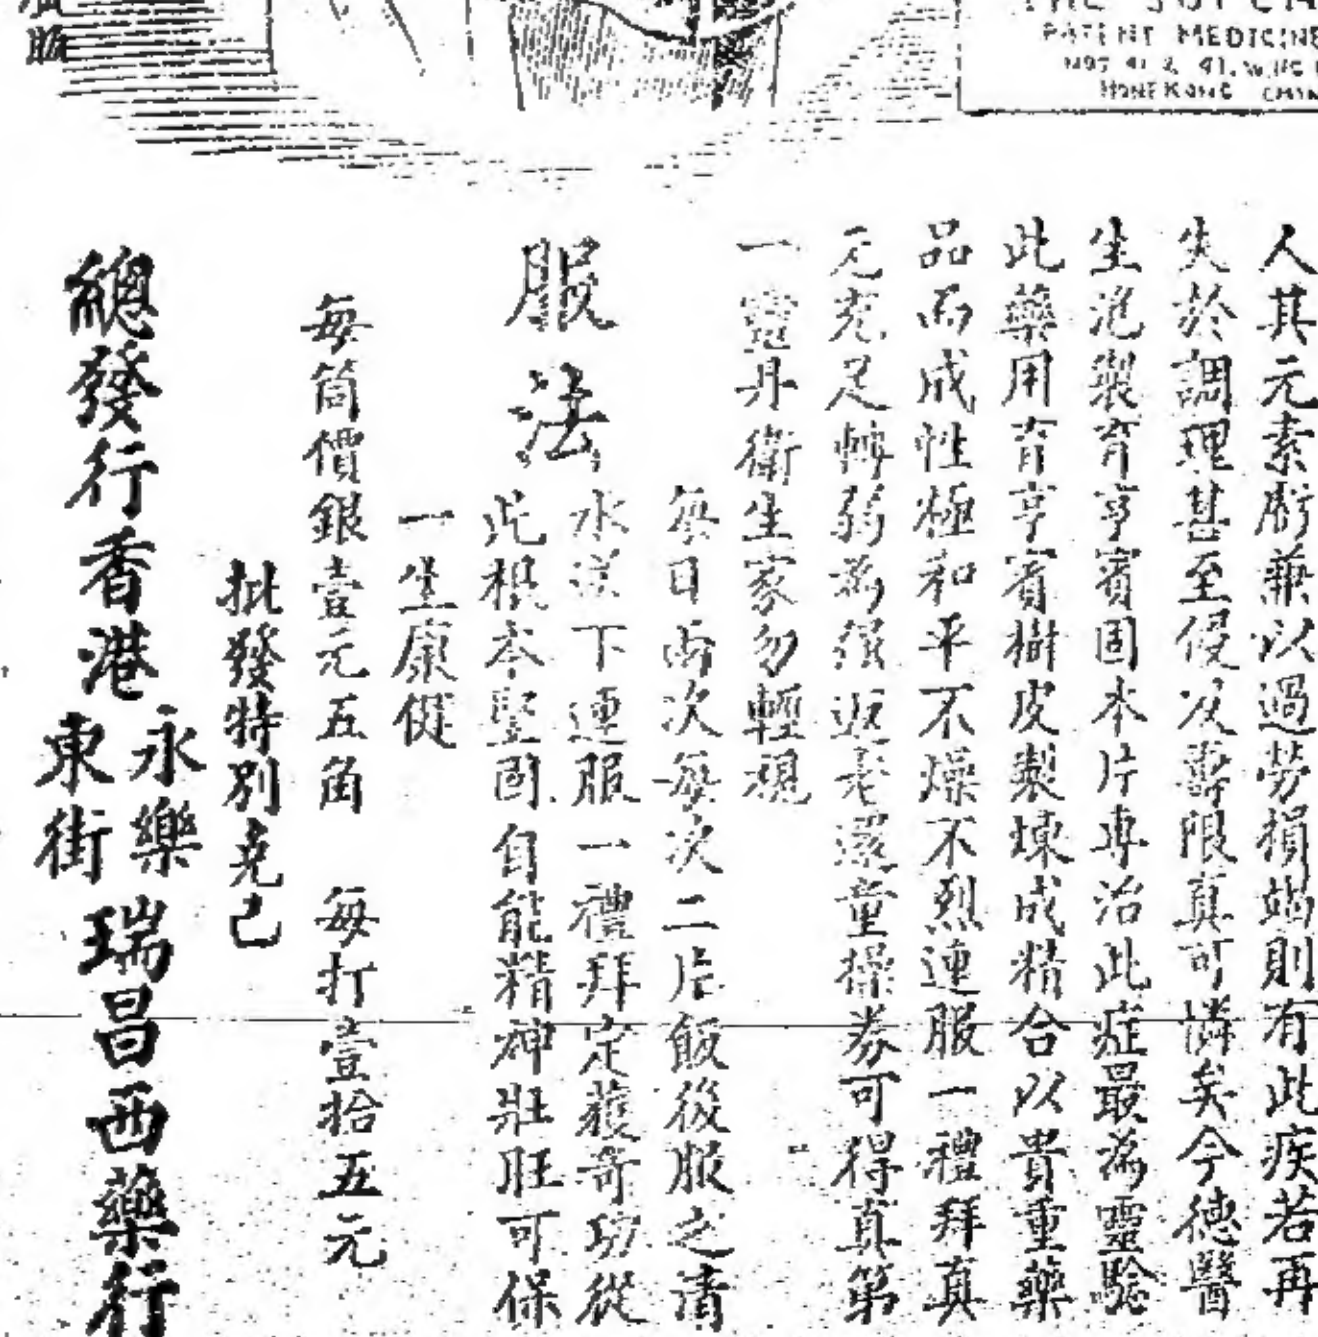 PATENT MEDICINE
HONG KONG CHIN
人其元素虧兼以過勞損竭則有此疾若再
失於調理甚至侵及壽限真可憐矣今德醫
生泡製育亨賓固本片專治此症最為靈驗
此藥用育亨賓樹皮製煉成精合以貴重藥
品而成性極和平不燥不烈連服一禮拜真
元充足轉弱為强返老還童操券可得真第
一靈丹衛生家勿輕視
服法
每日兩次每次二片飯後服之清
水送下連服一禮拜定獲奇功從
此根本堅固自能精神壯旺可保
一生康健
每筒價銀壹元五角 每打壹拾五元
批發特別克己
總發行香港永樂東街瑞昌西藥行